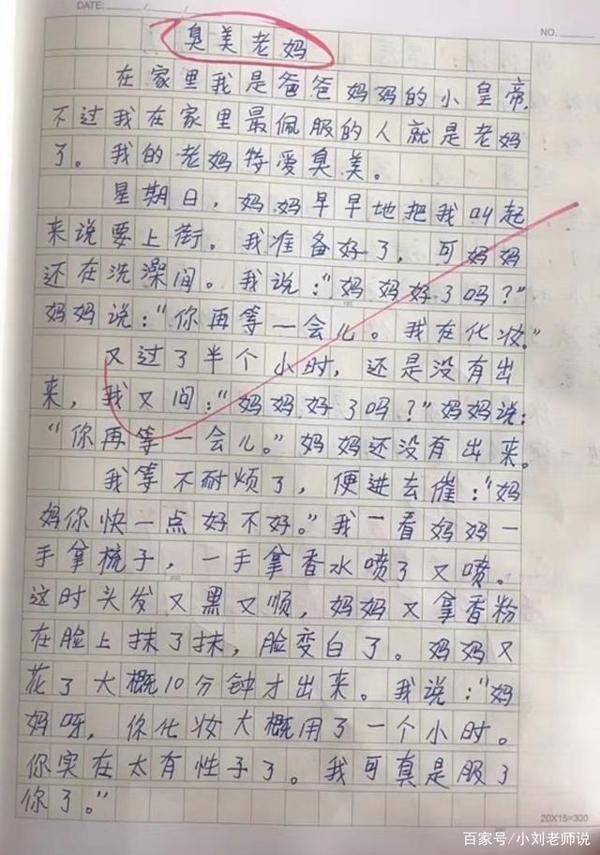 DATE:
NO.
臭美老妈
在家里我是爸爸妈妈的小皇帝,
不过我在家里最佩服的人就是老妈
了。我的老妈特爱臭美。
星期日,妈妈早早地把我叫起
来说要上街。我准备好了,可妈妈
还在洗澡间。我说:“妈妈好了吗?”
妈妈说:“你再等一会儿。我在化妆。”
又过了半个小时,还是没有出
来,我又问:“妈妈好了吗?”妈妈说:
“你再等一会儿。”妈妈还没有出来。
我等不耐烦了,便进去催:“妈
妈你快一点好不好。”我一看妈妈一
手拿梳子,一手拿香水喷了又喷。
这时头发又黑又顺,妈妈又拿香粉
在脸上抹了抹,脸变白了。妈妈又
花了大概10分钟才出来。我说:“妈
妈呀,你化妆大概用了一个小时。
你实在太有性子了。我可真是服了
你了。”
20X15=300
百家号/小刘老师说